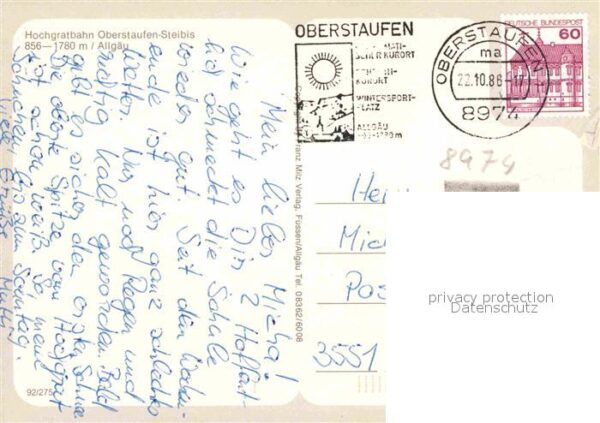 Hochgratbahn Oberstaufen-Steibis
856—1780 m / Allgäu
OBERSTAUFEN
KURORT
WINTERSPORT-
PLATZ
ALLGÄU
OBERSTAUFEN
ma
22.10.86-17
8974
DEUTSCHE BUNDESPOST
60
8974
Mein lieber Micha!
Wie geht es Dir?
schmeckt die Schule
wieder gut. Seit dem Wochen-
ende ist hier ganz schlechtes
Wetter. Nur noch Regen und
kalt geworden. Bald
gibt es sicher den ersten Schnee.
Die oberste Spitze vom Hochgrat
ist schon weiß. So mein
bis zum Sonntag.
Viele Grüße
Mutti
Franz Milz Verlag, Füssen/Allgäu Tel. 08362/6008
He
Mic
Pos
3551
privacy protection
Datenschutz
92/275